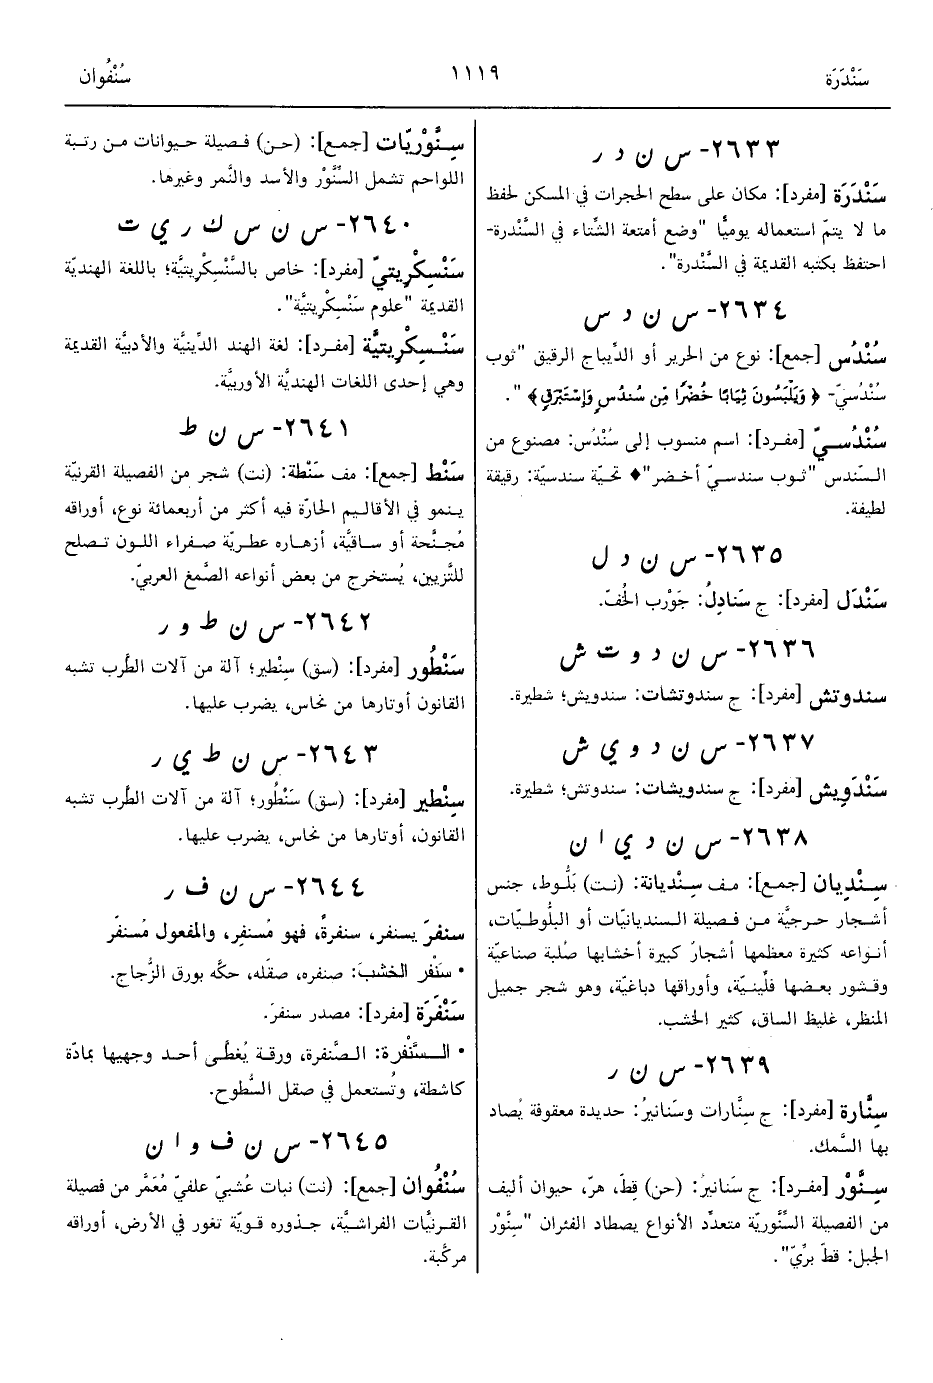 سَنْدَرَة
١١١٩
سُنْفُوان
٢٦٣٣- س ن د ر
سَنْدَرَة [مفرد]: مكان على سطح الحجرات في المسكن لحفظ
ما لا يتمّ استعماله يوميًّا "وضع أمتعة الشِّتاء في السَّنْدرة-
احتفظ بكتبه القديمة في السَّنْدرة".
٢٦٣٤- س ن د س
سُنْدُس [جمع]: نوع من الحرير أو الدِّيباج الرقيق "ثوب
سُنْدُسيّ- ﴿ وَيَلْبَسُونَ ثِيَابًا خُضْرًا مِّن سُندُسٍ وَإِسْتَبْرَقٍ ﴾ ".
سُنْدُسيّ [مفرد]: اسم منسوب إلى سُنْدُس: مصنوع من
السّندس "ثوب سندسيّ أخضر"♦ تحيّة سندسيّة: رقيقة
لطيفة.
٢٦٣٥- س ن د ل
سَنْدَل [مفرد]: ج سَنادِلُ: جَوْرب الخُفّ.
٢٦٣٦- س ن د و ت ش
سندوتش [مفرد]: ج سندوتشات: سندويش؛ شطيرة.
٢٦٣٧- س ن د و ي ش
سَنْدَوِيش [مفرد]: ج سندويشات: سندوتش؛ شطيرة.
٢٦٣٨- س ن د ي ا ن
سِنْدِيان [جمع]: مف سِنْديانة: (نت) بَلُّوط، جنس
أشجار حرجيَّة من فصيلة السنديانيّات أو البلُّوطيّات،
أنواعه كثيرة معظمها أشجارٌ كبيرة أخشابها صلبة صناعيّة
وقشور بعضها فلِّينيّة، وأوراقها دباغيّة، وهو شجر جميل
المنظر، غليظ الساق، كثير الخشب.
٢٦٣٩- س ن ر
سِنَّارة [مفرد]: ج سِنَّارات وسَنانيرُ: حديدة معقوفة يُصاد
بها السَّمك.
سِنَّوْر [مفرد]: ج سَنانيرُ: (حن) قِطّ، هرّ، حيوان أليف
من الفصيلة السِّنَّوريّة متعدِّد الأنواع يصطاد الفئران "سِنَّوْر
الجبل: قطّ برِّيّ".
سِنَّوْرِيّات [جمع]: (حن) فصيلة حيوانات من رتبة
اللواحم تشمل السِّنَّوْر والأسد والنَّمر وغيرها.
٢٦٤٠- س ن س ك ر ي ت
سَنْسِكْرِيتيّ [مفرد]: خاص بالسَّنْسِكْرِيتيَّة؛ باللغة الهنديّة
القديمة "علوم سَنْسِكْرِيتيَّة".
سَنْسِكْرِيتيَّة [مفرد]: لغة الهند الدِّينيَّة والأدبيَّة القديمة
وهي إحدى اللغات الهنديَّة الأوربيَّة.
٢٦٤١- س ن ط
سَنْط [جمع]: مف سَنْطة: (نت) شجر من الفصيلة القرنيّة
ينمو في الأقاليم الحارّة فيه أكثر من أربعمائة نوع، أوراقه
مُجنَّحة أو ساقيَّة، أزهاره عطريّة صفراء اللون تصلح
للتَّزيين، يُستخرج من بعض أنواعه الصَّمغ العربيّ.
٢٦٤٢- س ن ط و ر
سَنْطُور [مفرد]: (سق) سِنْطير؛ آلة من آلات الطَّرب تشبه
القانون أوتارها من نحاس، يضرب عليها.
٢٦٤٣- س ن ط ي ر
سِنْطير [مفرد]: (سق) سَنْطُور؛ آلة من آلات الطَّرب تشبه
القانون، أوتارها من نحاس، يضرب عليها.
٢٦٤٤- س ن ف ر
سنفرَ يسنفر، سنفرةً، فهو مُسنفِر، والمفعول مُسنفَر
• سَنْفَر الخشبَ: صنفره، صقَله، حكَّه بورق الزُّجاج.
سَنْفَرَة [مفرد]: مصدر سنفرَ.
• السَّنْفرة: الصَّنفرة، ورقة يُغطَّى أحد وجهيها بمادّة
كاشطة، وتُستعمل في صقل السُّطوح.
٢٦٤٥- س ن ف و ا ن
سُنْفُوان [جمع]: (نت) نبات عُشبيّ علفيّ مُعَمَّر من فصيلة
القرنيَّات الفراشيَّة، جذوره قويّة تغور في الأرض، أوراقه
مركَّبة.